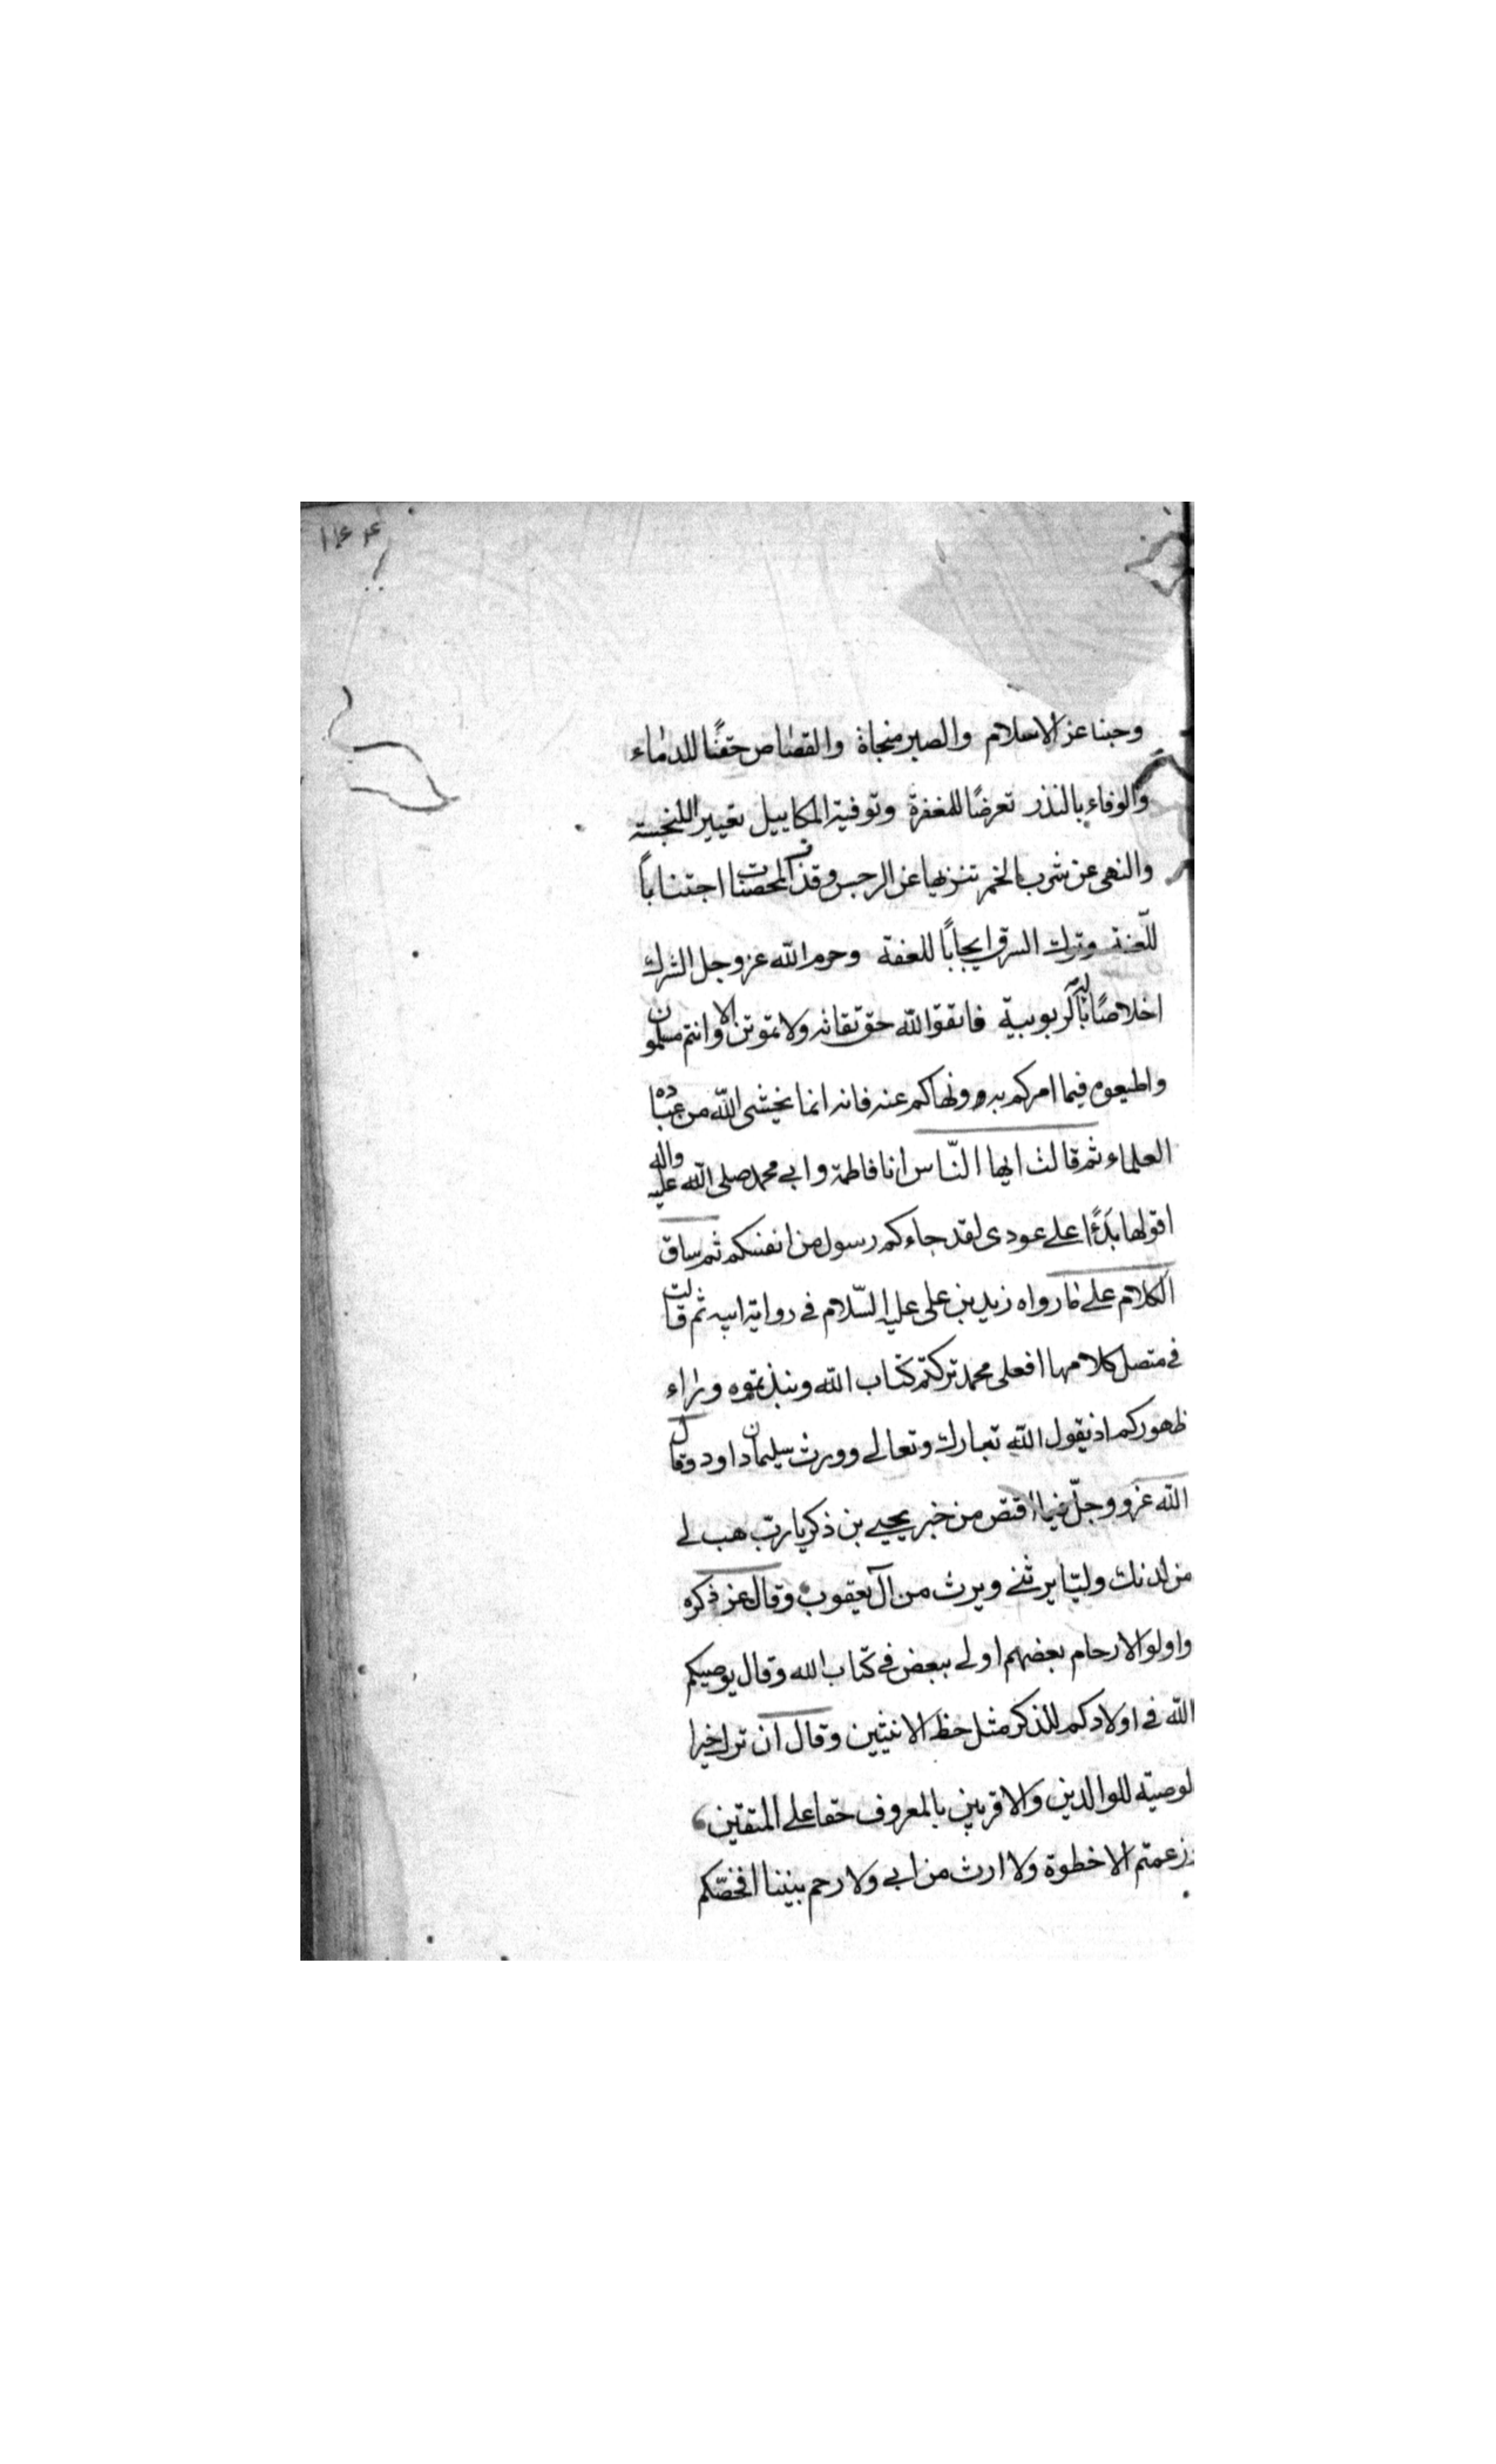 وحبنا عز الاسلام والصبر منجاة والقصاص حقنًا للدماء
والوفاء بالنذر تعرضًا للمغفرة وتوفية المكاييل تعيير اللنجسته
والنهى عن شرب الخمر تنزيها عن الرجس وقذف المحصنات اجتنابًا
للّعنة وترك السرق ايجابًا للعفة وحرم الله عز وجل الشرك
اخلاصًا له بالربوبية فاتقوا الله حق تقاته ولا تموتن الا وانتم مسلمون
واطيعوه فيما امركم به ونهاكم عنه فانه انما يخشى الله من عباده
العلماء ثم قالت ايها النّاس انا فاطمة وابي محمد صلى الله عليه واله
اقولها بَدءًا على عودى لقد جاءكم رسول من انفسكم ثم ساق
الكلام على ما رواه زيد بن على عليه السّلام في رواية ابيه ثم قالت
في متصل كلامها افعلى محمد تركتم كتاب الله ونبذتموه وراء
ظهوركم اذ يقول الله تبارك وتعالى وورث سليمان داود وقال
الله عز ووجلّ فيما اقتص من خبر يحيى بن ذكريا رب هب لي
من لدنك وليّا يرثني ويرث من آل يعقوب وقال عز ذكره
واولو الارحام بعضهم اولى ببعض في كتاب الله وقال يوصيكم
الله في اولادكم للذكر مثل حظ الانثيين وقال ان ترك خيرا
لوصيته للوالدين والاقربين بالمعروف حقا على المتقين
وزعمتم الا خطوة ولا ارث من ابي ولا رحم بيننا افخصّكم